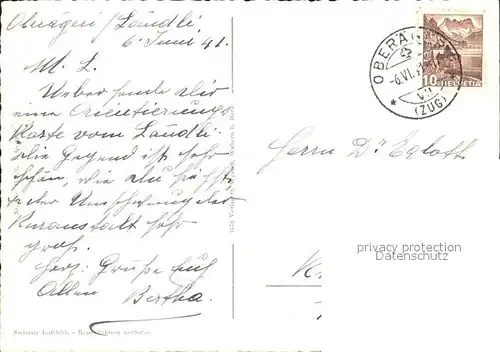 Oberägeri / Ländli
6 Juni 41.
M. L.
Uebersende dir
eine Orientierungs
Karte vom Ländli.
Die Gegend ist sehr
schön, wie du siehst
der Umschwung der
Kuranstalt sehr
gross.
Herz. Grüsse Euch
Allen Bertha.
OBERÄGERI
-6.VI.
(ZUG)
10 HELVETIA
Herrn Dr Egloff
privacy protection
Datenschutz
Swissair Luftbild. - Reproduktion verboten